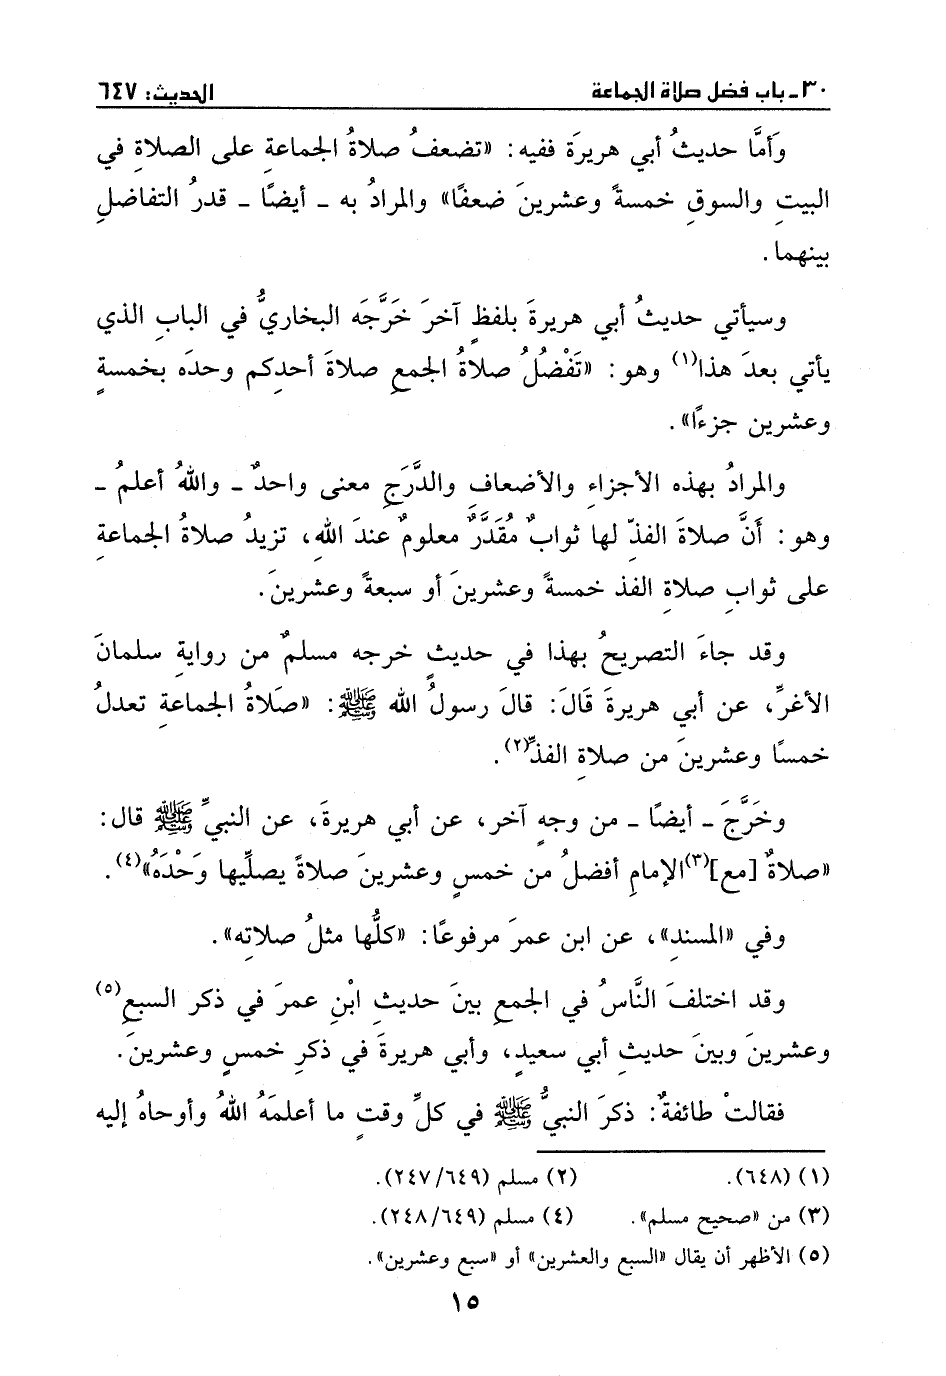 ٣٠- باب فضل صلاة الجماعة
الحديث: ٦٤٧
وَأمَّا حديثُ أبي هريرةَ ففيه: «تضعفُ صلاةُ الجماعةِ على الصلاةِ في
البيتِ والسوقِ خمسةً وعشرينَ ضعفًا» والمرادُ به - أيضًا - قدرُ التفاضلِ
بينهما.
وسيأتي حديثُ أبي هريرةَ بلفظٍ آخرَ خَرَّجَه البخاريُّ في البابِ الذي
يأتي بعدَ هذا(١) وهو: «تَفْضُلُ صلاةُ الجمعِ صلاةَ أحدِكم وحدَه بخمسةٍ
وعشرين جزءًا».
والمرادُ بهذه الأجزاءِ والأضعافِ والدَّرَجِ معنى واحدٌ - واللهُ أعلمُ -
وهو: أَنَّ صلاةَ الفذِّ لها ثوابٌ مُقَدَّرٌ معلومٌ عندَ اللهِ، تزيدُ صلاةُ الجماعةِ
على ثوابِ صلاةِ الفذ خمسةً وعشرينَ أو سبعةً وعشرينَ.
وقد جاءَ التصريحُ بهذا في حديثٍ خرجه مسلمٌ من روايةِ سلمانَ
الأغرِّ، عن أبي هريرةَ قَالَ: قالَ رسولُ الله ﷺ: «صَلاةُ الجماعةِ تعدلُ
خمسًا وعشرينَ من صلاةِ الفذِّ(٢).
وخَرَّجَ - أيضًا - من وجهٍ آخر، عن أبي هريرةَ، عن النبيِّ ﷺ قال:
«صلاةٌ [مع](٣)الإمامِ أفضلُ من خمسٍ وعشرينَ صلاةً يصلِّيها وَحْدَهُ»(٤).
وفي «المسندِ»، عن ابن عمرَ مرفوعًا: «كلُّها مثلُ صلاتِه».
وقد اختلفَ النَّاسُ في الجمعِ بينَ حديثِ ابْنِ عمرَ في ذكر السبعِ(٥)
وعشرينَ وبينَ حديثِ أبي سعيدٍ، وأبي هريرةَ في ذكرِ خمسٍ وعشرينَ.
فقالتْ طائفةٌ: ذكرَ النبيُّ ﷺ في كلِّ وقتٍ ما أعلمَهُ اللهُ وأوحاهُ إليه
(١) (٦٤٨).
(٢) مسلم (٦٤٩/٢٤٧).
(٣) من «صحيح مسلم».
(٤) مسلم (٦٤٩/٢٤٨).
(٥) الأظهر أن يقال «السبع والعشرين» أو «سبع وعشرين».
١٥